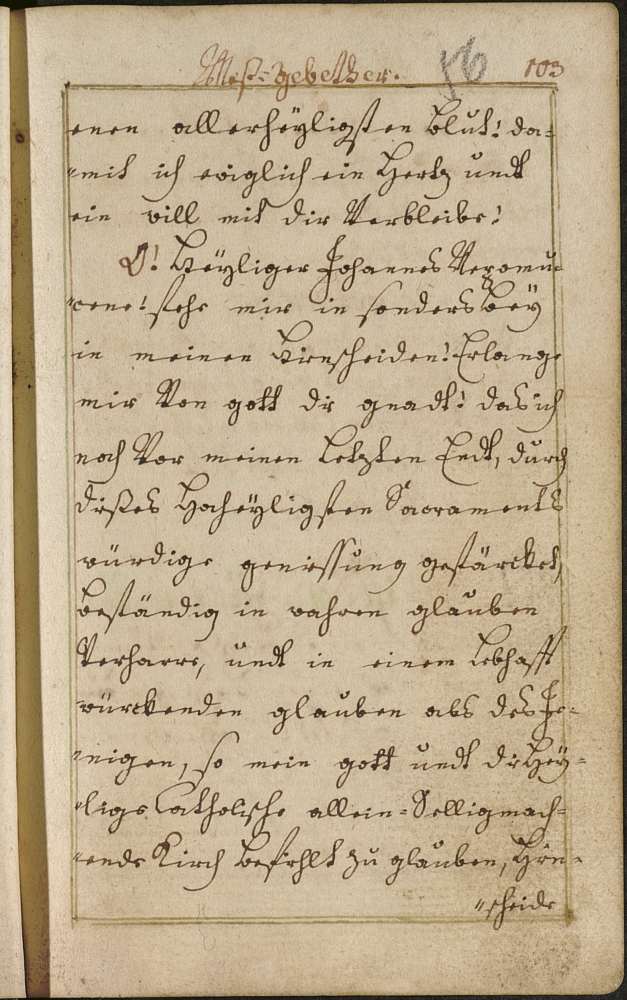 Meß=gebether. 56 103
enen allerheÿligsten Blut! da=
=mit ich ewiglich ein Hertz undt
ein will mit dir Verbleibe!
O! Heÿliger Johannes Nepomu=
=cene! stehe mir in sonders beÿ
in meinen Hinscheiden! Erlange
mir Von gott die gnadt! das ich
noch Vor meinen Letzten Endt, durch
dißes Hocheÿligsten Sacraments
würdige geniessung gestärcket,
beständig in wahren glauben
Verharre, undt in einem Lebhafft
würckenden glauben als des Je=
=nigen, so mein gott undt die Heÿ=
=lige Catholische allein=Selligmach=
=ende Kirch befehlt zu glauben, Hin=
=scheide